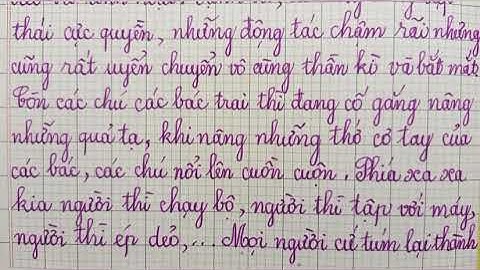 thái cực quyền, những động tác chậm rãi nhưng
cũng rất uyển chuyển vô cùng thần kì và bắt mắt.
Còn các chú các bác trai thì đang cố gắng nâng
những quả tạ, khi nâng những thớ cơ tay của
các bác, các chú nổi lên cuồn cuộn. Phía xa xa
kia người thì chạy bộ, người thì tập với máy,
người thì ép dẻo,... Mọi người cứ túm lại thành